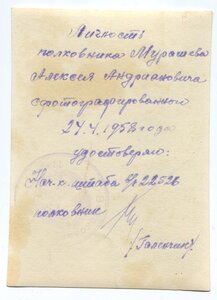 Личность
полковника Мурашева
Алексея Андриановича
сфотографированного
24.4.1958 года
удостоверяю:
Нач-к штаба в/ч 22526
полковник